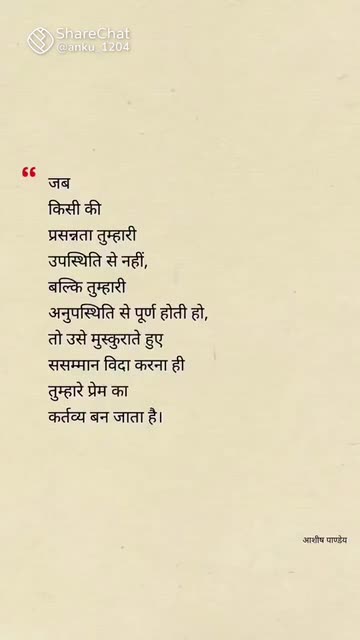 ShareChat
@anku_1204
“
जब
किसी की
प्रसन्नता तुम्हारी
उपस्थिति से नहीं,
बल्कि तुम्हारी
अनुपस्थिति से पूर्ण होती हो,
तो उसे मुस्कुराते हुए
ससम्मान विदा करना ही
तुम्हारे प्रेम का
कर्तव्य बन जाता है।
आशीष पाण्डेय